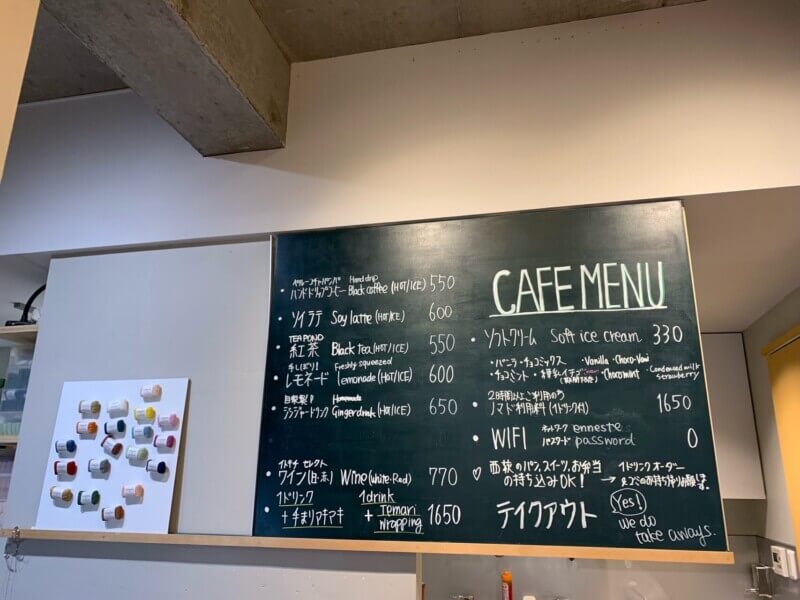 Hand drip
ハンドドリップコーヒー Black coffee (HOT/ICE) 550
ソイラテ Soy latte (HOT/ICE) 600
TEA POND
紅茶 Black Tea (HOT/ICE) 550
手しぼり! Freshly squeezed
レモネード lemonade (HOT/ICE) 600
自家製! Homemade
ジンジャードリンク Ginger drink (HOT/ICE) 650
セレクト
ワイン(白・赤) Wine (White・Red) 770
1ドリンク 1 drink
+ 手まりマキマキ + Temari wrapping 1650
CAFE MENU
ソフトクリーム Soft ice cream 330
・バニラ・チョコミックス ・Vanilla ・Choco-Vani
・チョコミント ・練乳イチゴ ・Chocomint ・Condensed milk strawberry
(期間限定)
2時間以上ご利用の方
ノマド利用料(1ドリンク付) 1650
WIFI ネットワーク enneste
パスワード password 0
♡ 西荻のパン、スイーツ、お弁当 1ドリンクオーダー
の持ち込みOK! →
テイクアウト Yes!
we do
take aways.